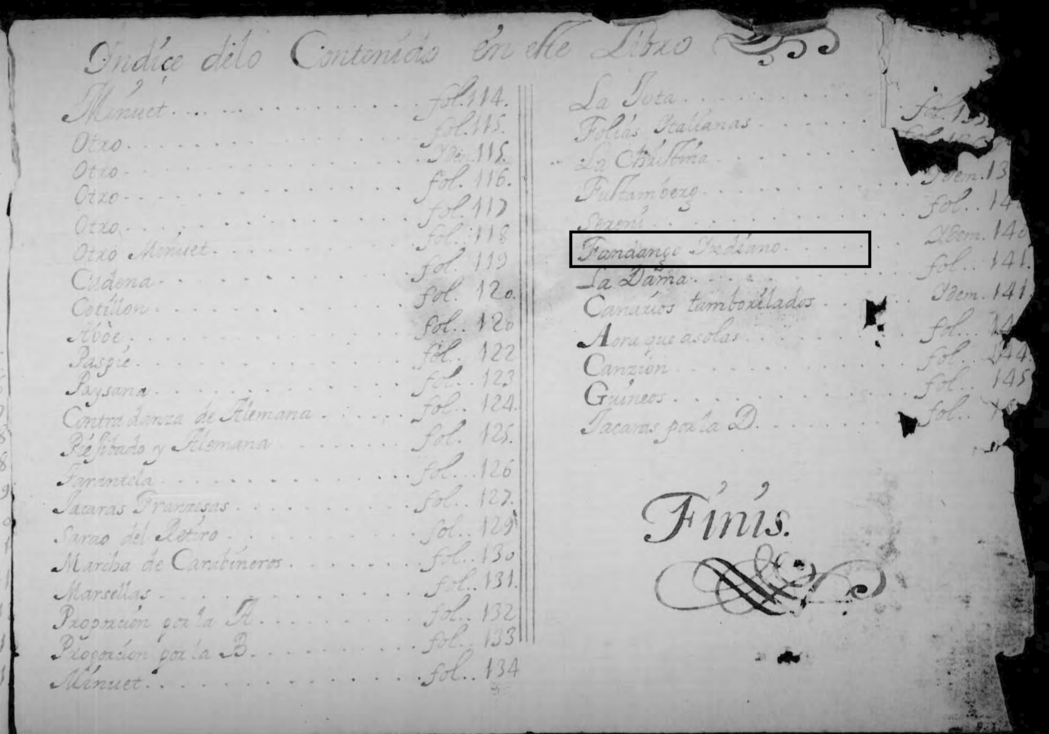 Indice dilo Contenido en este Libro
Minuet fol. 114.
Otro fol. 115.
Otro Idem. 115.
Otro fol. 116.
Otro fol. 117
Otro fol. 118
Otro Menuet fol. 119
Cadena fol. 120.
Cotillon fol. 120
Aboe fol. 122
Paspie fol. 123
Paysana fol. 124.
Contradanza de Alemana fol. 125.
Alemana fol. 126
Tarantela fol. 127.
Jacaras Francesas fol. 129
Sarao del Retiro fol. 130
Marcha de Carabineros fol. 131.
Marsellas fol. 132
por la A fol. 133
por la B fol. 134
Minuet
La Jota fol.
Folias Italianas
La Christina Idem. 13
Fustamberg fol. 14
Sereni Idem. 140
Fandango Indiano fol. 141.
La Dama Idem. 141
Canarios tamborilados fol. 14
Aora que a solas fol. 144
Canzion fol. 145
Guineos fol.
Jacaras por la D.
Finis.